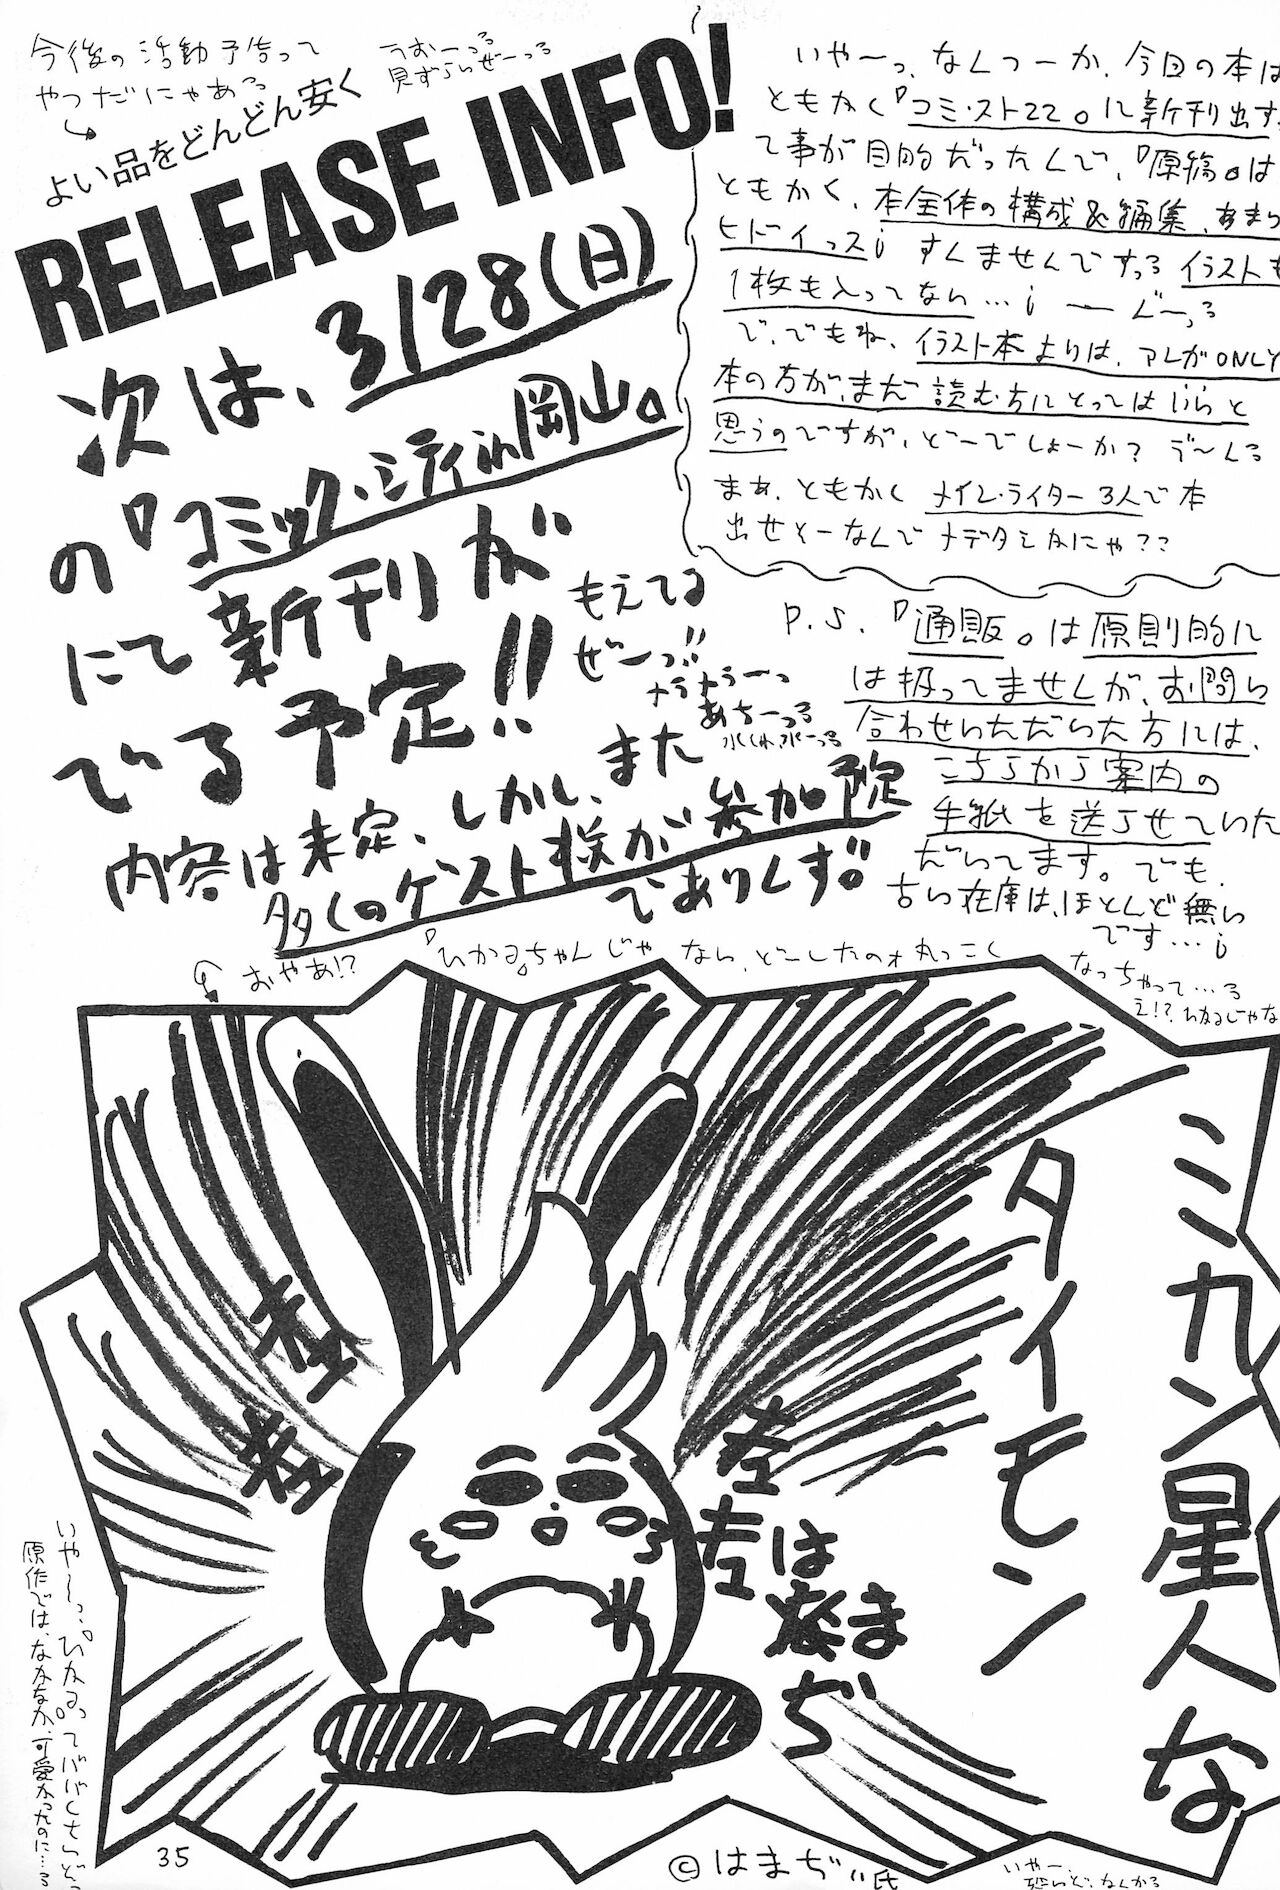 今後の活動予告って
やつだにゃあっる
うおーっる
見ずらいぜーっる
よい品をどんどん安く
RELEASE INFO!
次は、3/28(日)
の『コミック・シティin岡山』
にて新刊が
でいる予定!!
もえてる
ぜーっ!!
メラメラーっ
あちーっる
内容は未定、しかし、また
多くのゲスト様が参加予定
でありんす。
いや〜っ、なんつーか、今回の本は
ともかく『コミ・スト22』に新刊出すっ
て事が目的だったんで、『原稿』は
ともかく、本全体の構成&編集、あまり
ヒドイっスi すんませんですっる イラストも
1枚も入ってない…i ーんーっる
で、でもね、イラスト本よりは、マンガONLY
本の方が、まだ読む方にとってはいいと
思うのですが、どーでしょーか? う〜んる
まぁ、ともかく メイン・ライター3人で本
出せそーなんで メデタシかにゃ??
P.S.『通販』は原則的に
は扱ってませんが、お問い
合わせいただいた方には、
こちらから案内の
手紙を送らせていた
だいてます。でも、
古い在庫は、ほとんど無い
です…i
おやあ!?
『ひかる』ちゃんじゃない、どーしたのォ 丸っこく
なっちゃって…る
え!?、ひかるじゃな
ミカン星人な
タイモン
左
左
左
左
は
まぢ
いや〜っ、『ひかる』ってババくさいどっ
原作では、なかなか、可愛かったのに…る
35
©はまぢぃ氏
いやー、